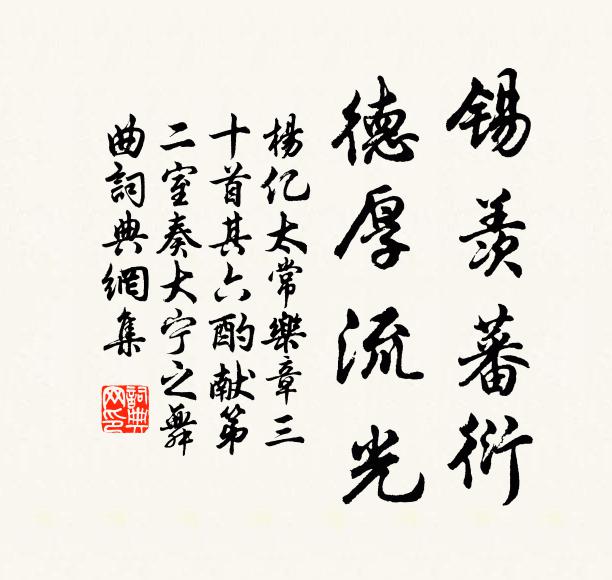 錫羨蕃衍
德厚流光
楊亿太常樂章三
十首其六酌献第
二室奏大宁之舞
曲詞典網集
詞典
网印